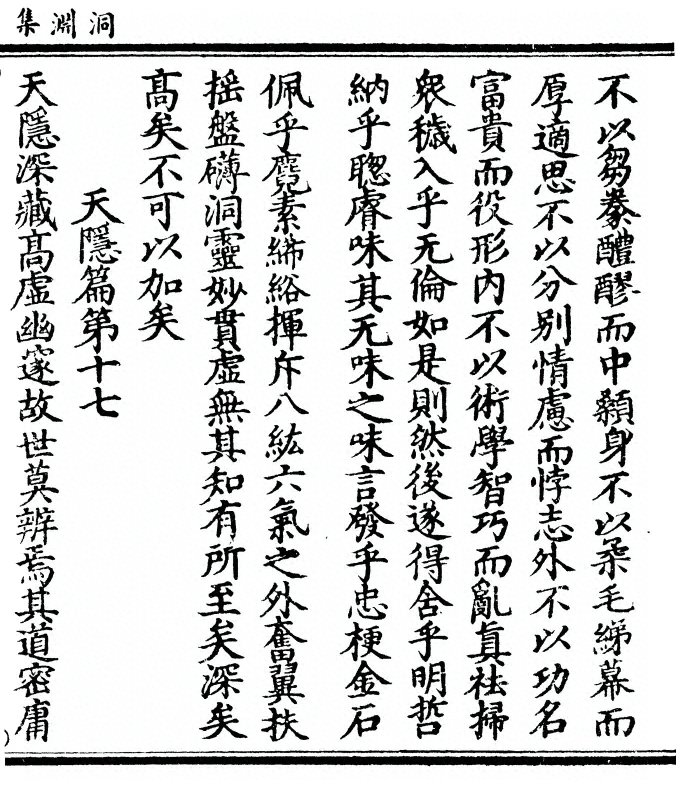 洞淵集
不以芻豢醴醪而中纇身不以柔毛綈幕而
厚適思不以分别情慮而悖志外不以功名
富貴而役形内不以術學智巧而亂真祛掃
衆穢入乎无倫如是則然後遂得舍乎明哲
納乎聦睿味其无味之味言發乎忠梗金石
佩乎麑素綈綌揮斥八紘六氣之外奮翼扶
揺盤礴洞靈妙貫虛無其知有所至矣深矣
髙矣不可以加矣
天隱篇第十七
天隱深藏髙虛幽邃故世莫辨焉其道密庸